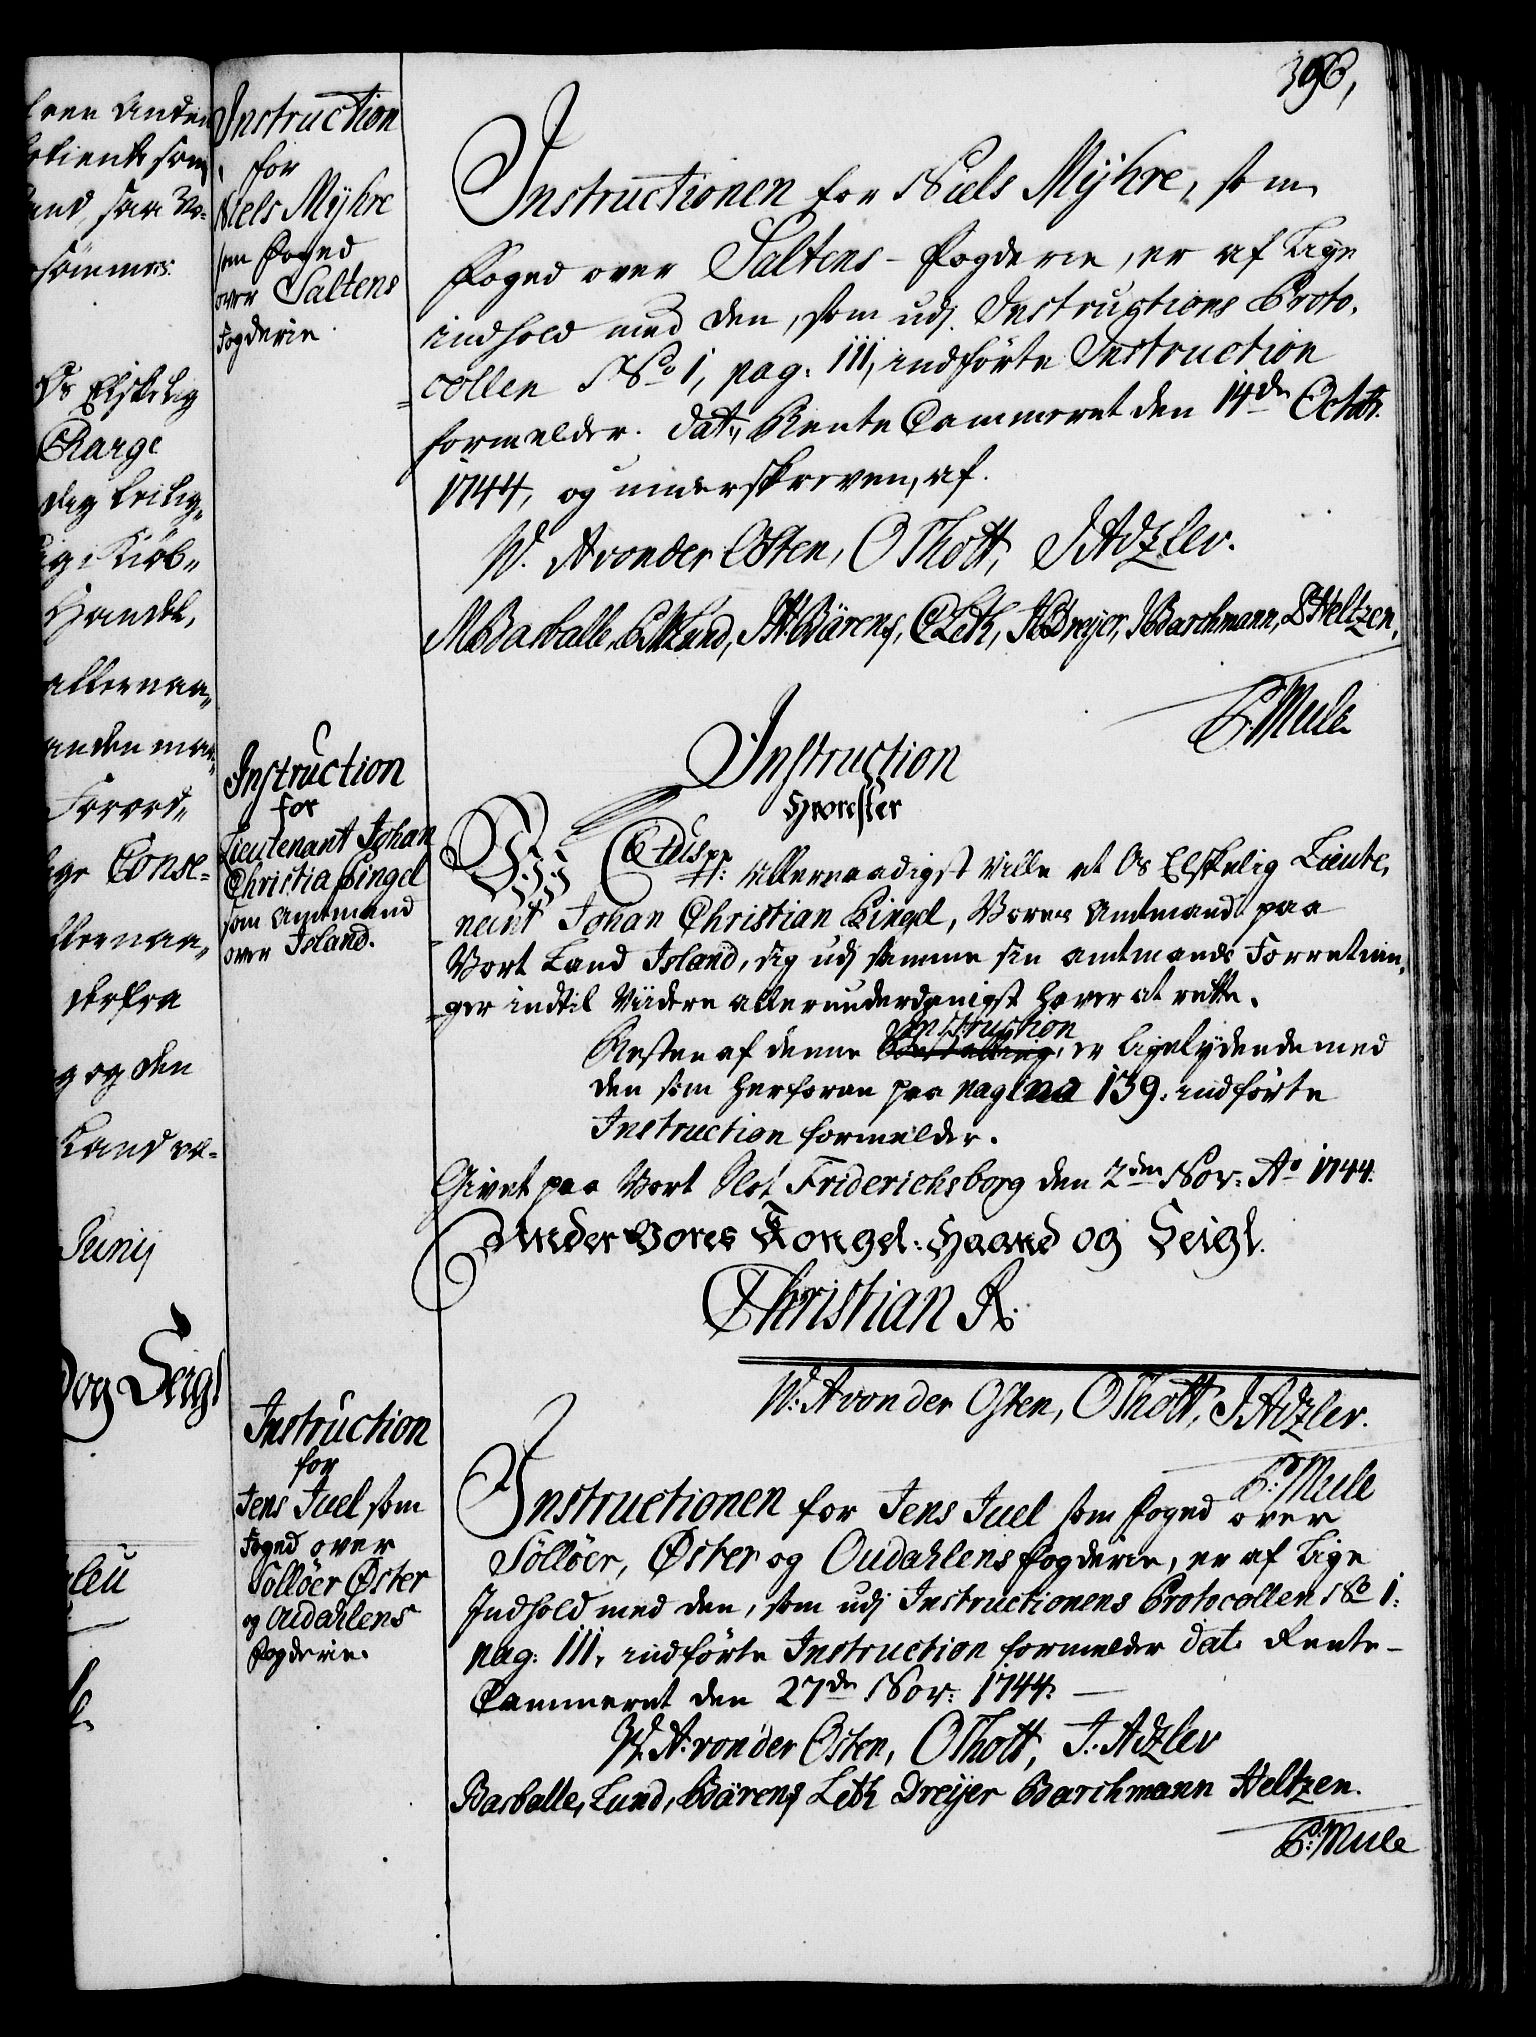 396,
Instruction
for
Niels Mÿhre
som Foged
over Saltens
Fogderie
Instructionen for Niels Mÿhre, som
Foged over Saltens-Fogderie, er af lige
indhold med den, som udj Instructions Proto-
collen No 1, pag: 111, indförte Instruction
formelder. dat: Rente Cammeret den 14de Octobr.
1744, og underskreven, af.
W. A von der Osten, O Thott, J Adzlev.
M Basballe, Lund, Bärens, C Leth, H Dreÿer, Barchmann, Heltzen,
P. Mule
Instruction
for
Lieutenant Johan
Christia Pingel
som Amtmand
over Island.
Instruction
Hvorefter
Wi C 6tus pp: Allernaadigst Ville at Os Elskelig Lieute,
nant Johan Christian Pingel, Vores Amtmand paa
Vort Land Island, sig udj samme sin Amtmands Forretnin,
ger indtil Viidere allerunderdanigst haver at rette.
Resten af denne Instruction er ligelÿdende med
den som herforan paa pagina 139. indförte
Instruction formelder.
Givet paa Vort Slot Friderichsborg den 2den Nov: Ao 1744.
Under Vores Kongel: Haand og Seigl.
Christian R.
W: A von der Osten, O Thott, J Adzlev.
P: Mule
Instruction
for
Jens Juel som
Foged over
Sollöer Øster
og Oudahlens
Fogderie.
Instructionen for Jens Juel som Foged over
Sollöer, Øster og Oudahlens Fogderie, er af lige
Indhold med den, som udj Instructionens Protocollen No 1:
pag: 111, indförte Instruction formelder dat: Rente-
Cammeret den 27de Nov: 1744.
W. A: von der Osten, O Thott, J: Adzlev
Basballe, Lund, Bärens Leth Dreÿer Barchmann Heltzen.
P: Mule